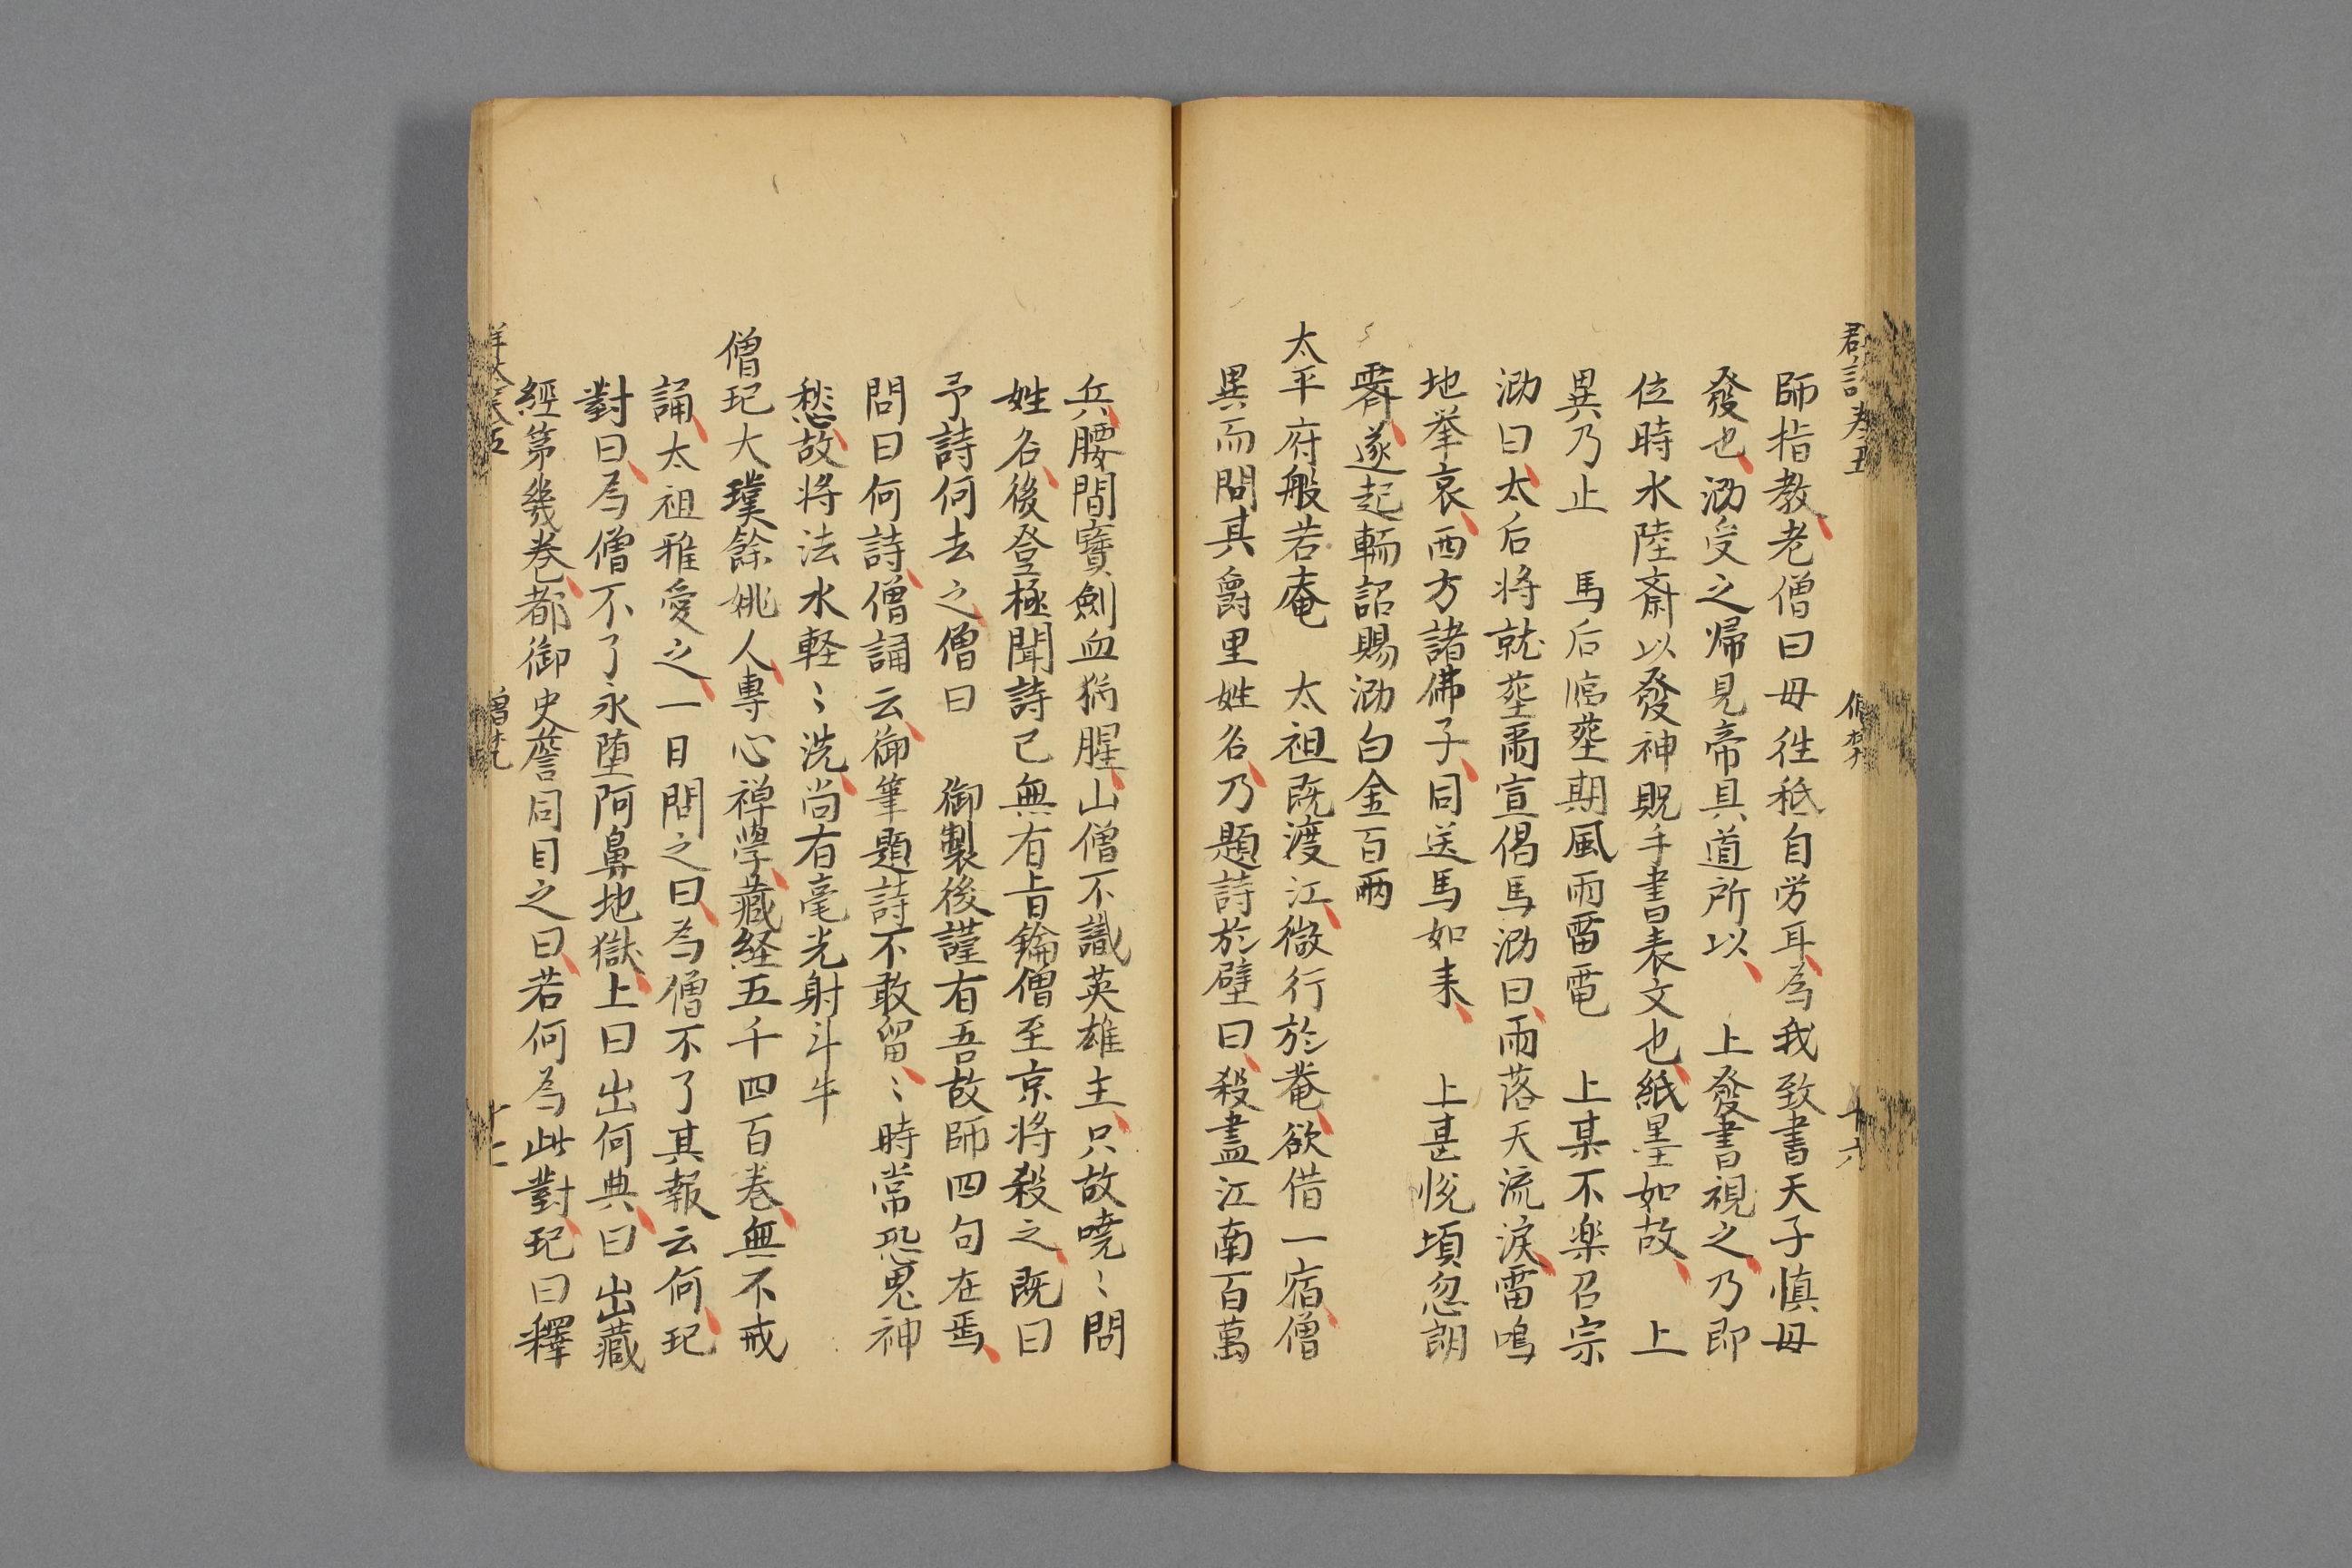 師指教老僧曰毋徃秖自労耳為我致書天子慎毋
發也泐受之帰見帝具道所以 上發書視之乃即
位時水陸斎以發神貺手書表文也紙墨如故 上
異乃止 馬后臨塟期風雨雷電 上某不楽召宗
泐曰太后将就塟爾宣偈馬泐曰雨落天流淚雷鳴
地挙哀西方諸佛子同送馬如来 上甚悦頃忽朗
霽遂起輀詔賜泐白金百兩
太平府般若庵 太祖既渡江微行於菴欲借一宿僧
異而問其爵里姓名乃題詩於壁曰殺盡江南百萬
兵腰間寶劍血猶腥山僧不識英雄主只故嘵〻問
姓名後登極聞詩已無有旨鑰僧至京将殺之既曰
予詩何去之僧曰 御製後謹有吾故師四句在焉
問曰何詩僧誦云御筆題詩不敢留〻時常恐鬼神
愁故将法水軽〻洗尚有毫光射斗牛
僧玘大璞餘姚人專心禅學藏経五千四百巻無不戒
誦太祖雅愛之一日問之曰為僧不了其報云何玘
對曰為僧不了永堕阿鼻地獄上曰出何典曰出藏
經第幾巻都御史詹同目之曰若何為此對玘曰釋